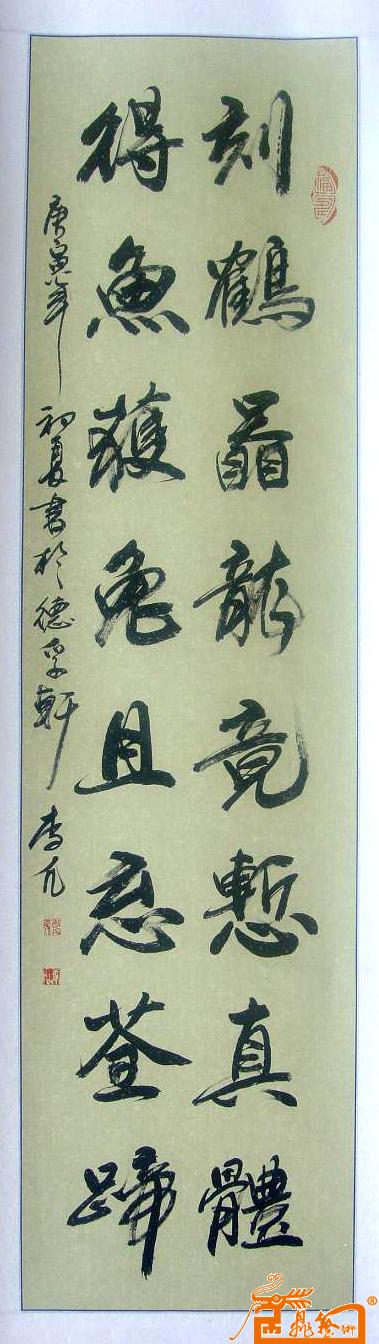 刻鶴啚龍竟慙真體
得魚獲兔且忘荃蹄
庚寅年初夏書於德孚軒 李凡